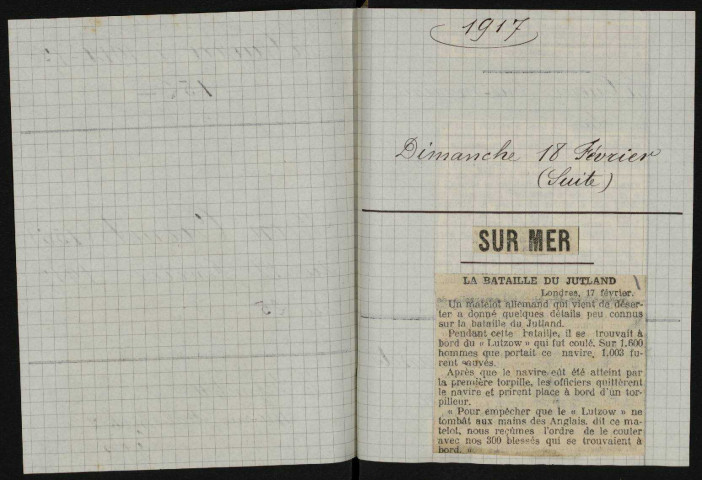 1917
Dimanche 18 Février
(Suite)
SUR MER
LA BATAILLE DU JUTLAND
Londres, 17 février.
Un matelot allemand qui vient de déser-
ter a donné quelques détails peu connus
sur la bataille du Jutland.
Pendant cette bataille, il se trouvait à
bord du « Lutzow » qui fut coulé. Sur 1.600
hommes que portait ce navire, 1.003 fu-
rent sauvés.
Après que le navire eût été atteint par
la première torpille, les officiers quittèrent
le navire et prirent place à bord d'un tor-
pilleur.
« Pour empêcher que le « Lutzow » ne
tombât aux mains des Anglais, dit ce ma-
telot, nous reçûmes l'ordre de le couler
avec nos 300 blessés qui se trouvaient à
bord. »